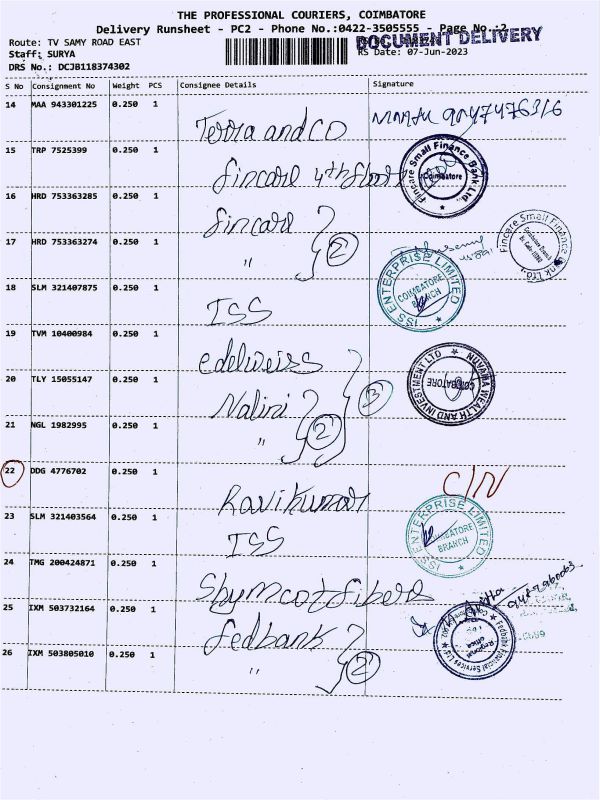 THE PROFESSIONAL COURIERS, COIMBATORE
Delivery Runsheet - PC2 - Phone No.:0422-3505555 - Page No.:2
DOCUMENT DELIVERY
Route: TV SAMY ROAD EAST
Staff: SURYA
RS Date: 07-Jun-2023
DRS No.: DCJB118374302
S No Consignment No Weight PCS Consignee Details Signature
14 MAA 943301225 0.250 1
Terra and CO
15 TRP 7525399 0.250 1
fincare 4th floor
Fincare Small Finance Bank Ltd.
Coimbatore
16 HRD 753363285 0.250 1
fincare
17 HRD 753363274 0.250 1
" 2
Fincare Small Finance Bank Ltd.
ISS ENTERPRISE LIMITED
COIMBATORE
BRANCH
18 SLM 321407875 0.250 1
ISS
19 TVM 10400984 0.250 1
edelweiss
NUVAMA WEALTH AND INVESTMENT LTD
COIMBATORE
20 TLY 15055147 0.250 1
Nalini 3
21 NGL 1982995 0.250 1
" 2
22 DDG 4776702 0.250 1
Ravikumar C/N
23 SLM 321403564 0.250 1
ISS
ISS ENTERPRISE LIMITED
COIMBATORE
BRANCH
24 TMG 200424871 0.250 1
25 IXM 503732164 0.250 1
fedbank
Fedbank Financial Services Ltd
Regional
Office
26 IXM 503805010 0.250 1
" 2